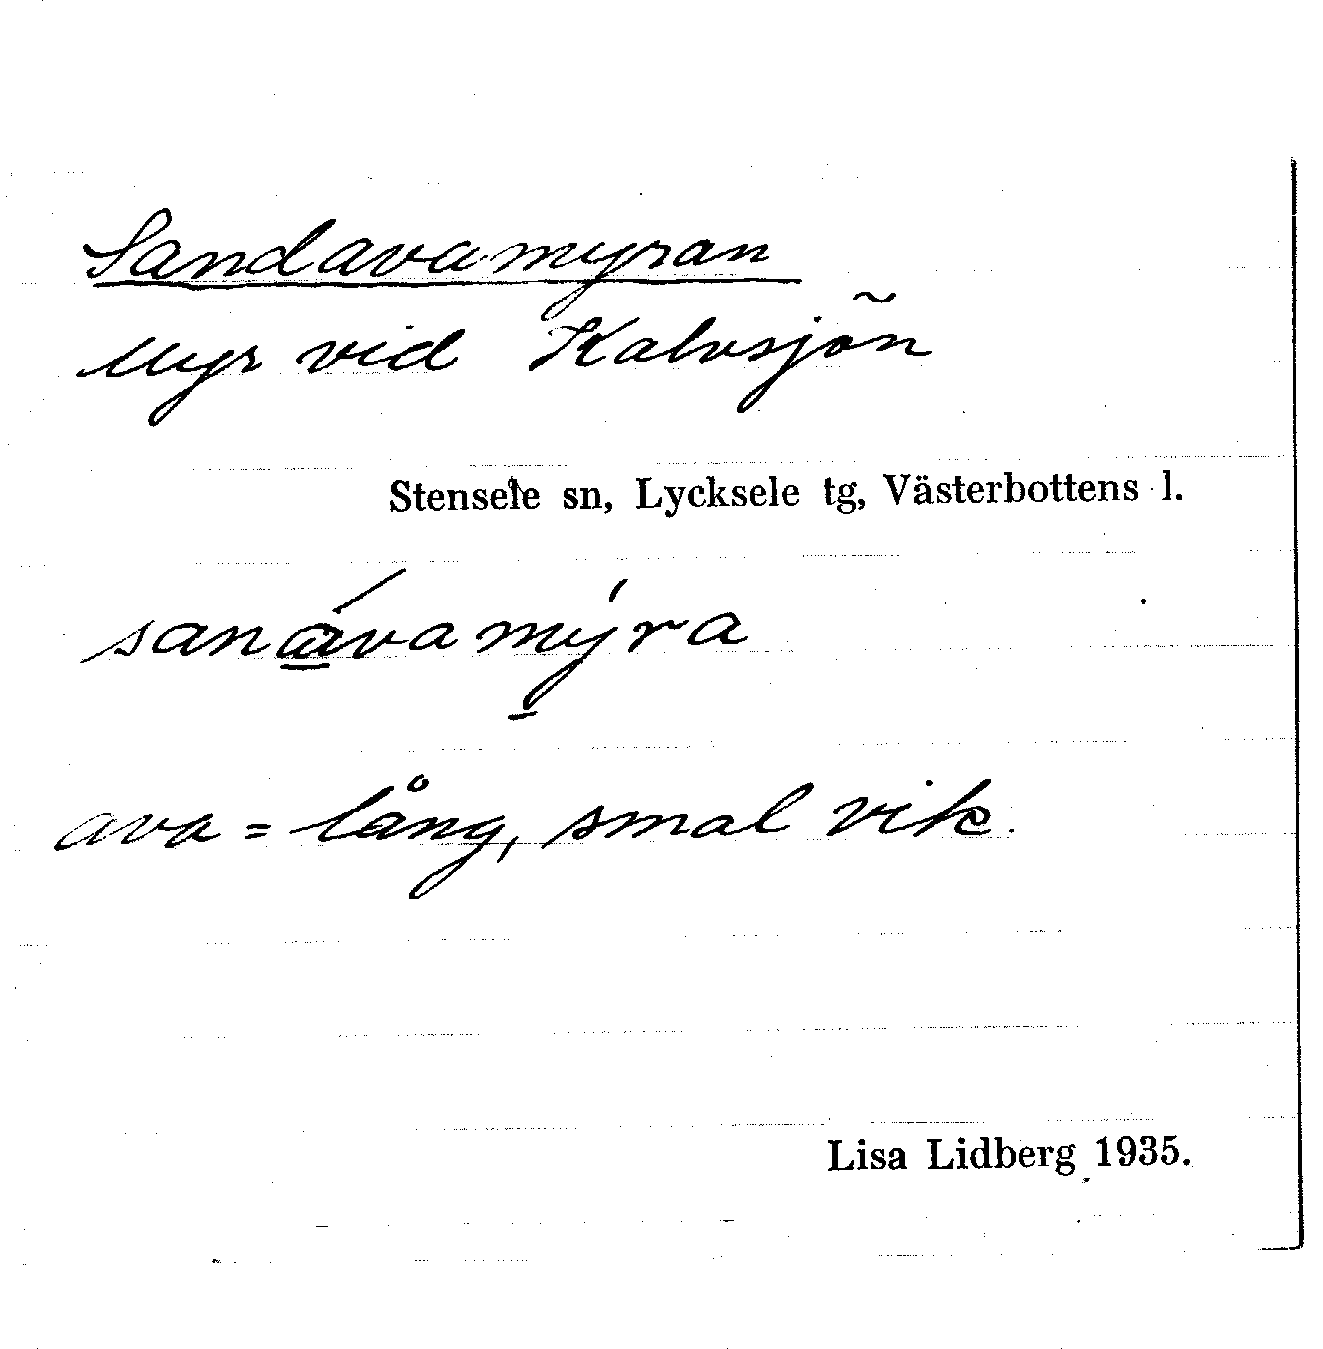 Sandavamyran
Myr vid Kalvsjön
Stensele sn, Lycksele tg, Västerbottens l.
sanávamýra
ava = lång, smal vik.
Lisa Lidberg 1935.